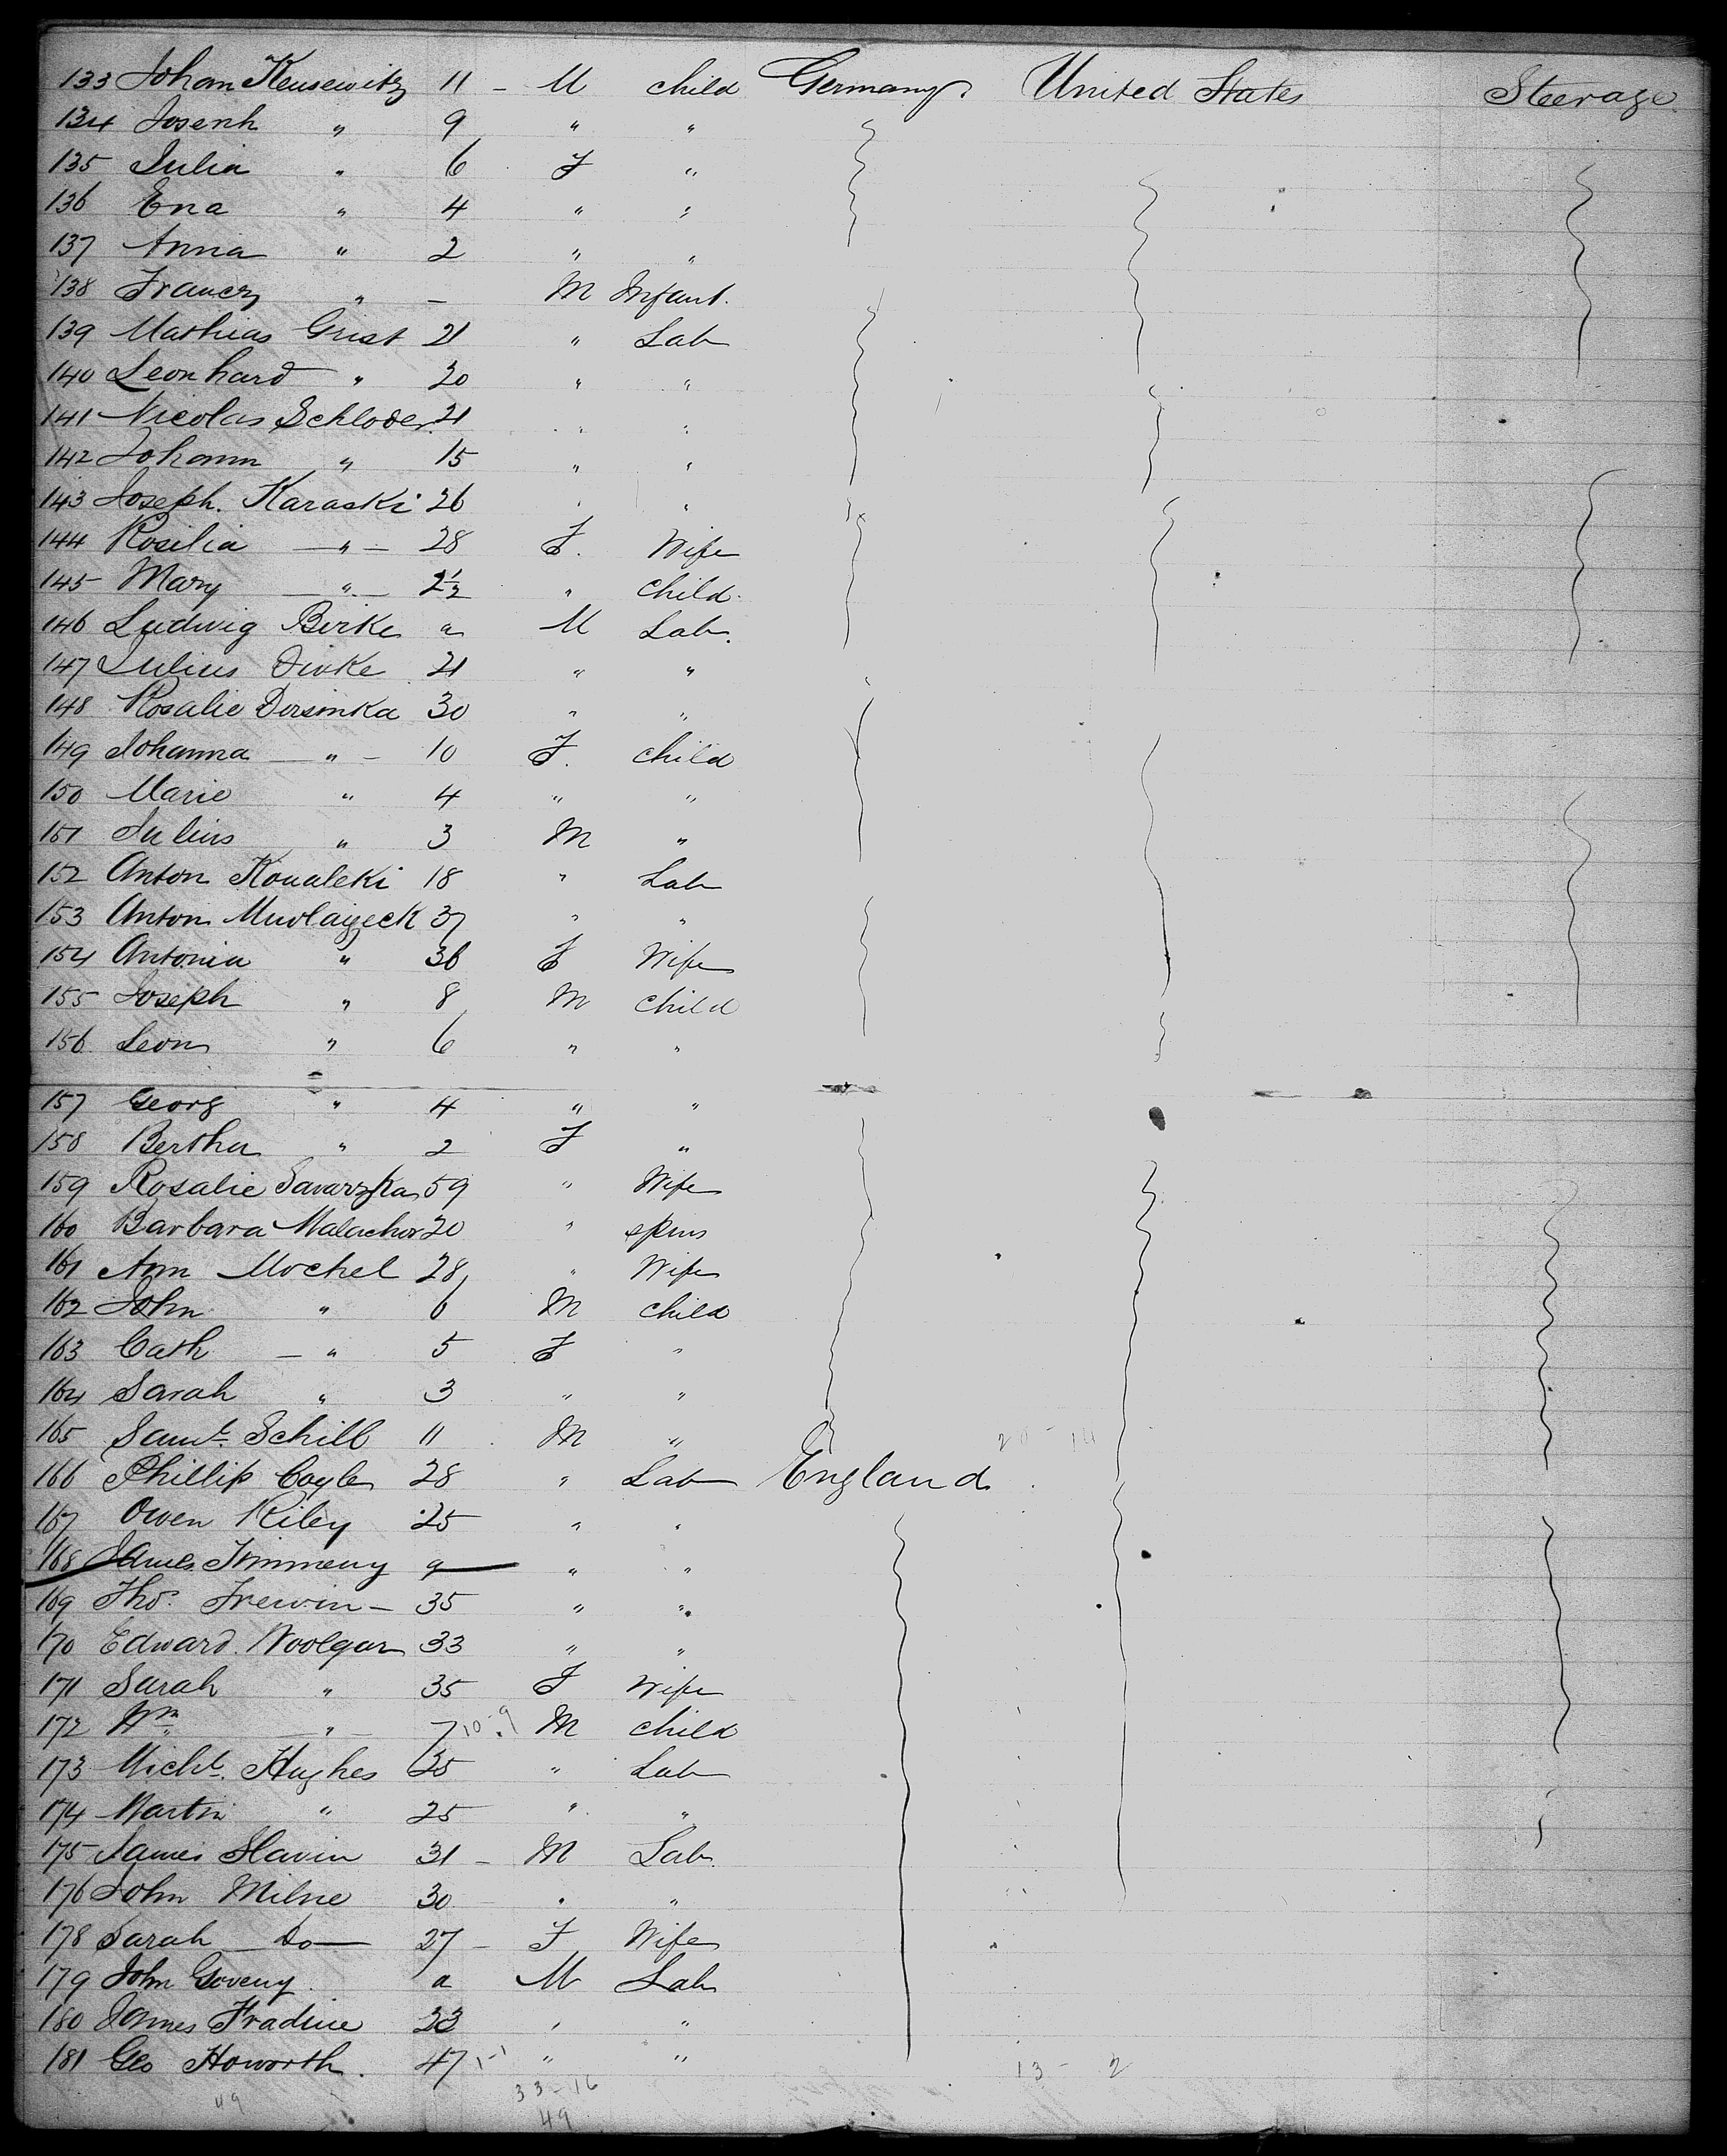 133 Johan Keusewitz 11 - M child Germany. United States Steerage
134 Joseph " 9 " "
135 Julia " 6 F "
136 Ena " 4 " "
137 Anna " 2 " "
138 Francz " - M Infant.
139 Mathias Grist 21 " Lab
140 Leonhard " 20 " "
141 Nicolas Schloder 21 " "
142 Johann " 15 " "
143 Joseph. Karaski 26 " "
144 Rosilia " 28 F. Wife
145 Mary " 2½ " child
146 Ludwig Birke a M Lab.
147 Julius 21 " "
148 Rosalie Dersinka 30 " "
149 Johanna " 10 F. child
150 Marie " 4 " "
151 Julius " 3 M "
152 Anton Koualeki 18 " Lab
153 Anton 37 " "
154 Antonia " 36 F Wife
155 Joseph " 8 M child
156 Leon " 6 " "
157 Georg " 4 " "
158 Bertha " 2 F "
159 Rosalie 59 " Wife
160 Barbara Malachor 20 " spins
161 Ann Mochel 28 " Wife
162 John " 6 M child
163 Cath " 5 F "
164 Sarah " 3 " "
165 Saml. Schill 11 M "
166 Phillip Coyle 28 " Lab England
167 Owen Riley 25 " "
168 James Timmeny a " "
169 Thos. Frewin - 35 " "
170 Edward. Woolgar 33 " "
171 Sarah " 35 F Wife
172 Wm " 7 10-9 M child
173 Michl. Hughes 25 " Lab
174 Martin " 25 " "
175 James Slavin 31 - M Lab.
176 John Milne 30 " "
178 Sarah Do 27 - F Wife
179 John Goveny a M Lab
180 James Fradine 23 " "
181 Geo Howorth. 47 1-1 " " 13 - 2
49 33-16
49